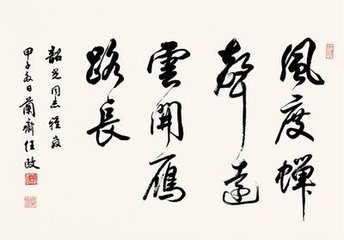 風度蟬
聲遠
雲開雁
路長
韶光同志雅属
甲子冬日蘭齋任政